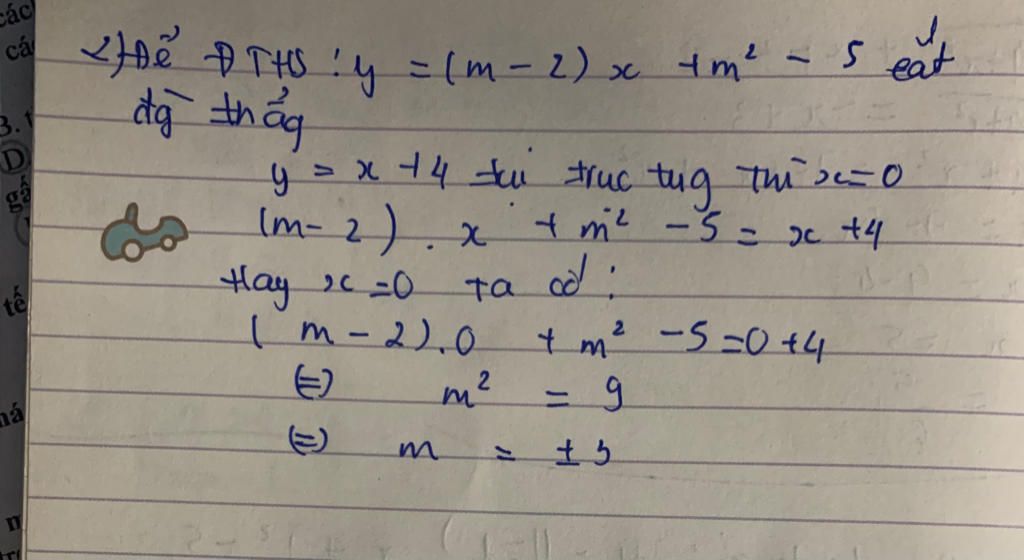 các
cá
2) Để ĐTHS : y = (m - 2) x + m² - 5 cắt
đg thẳg
3.
D
y = x + 4 tại trục tug thì x = 0
gấ
(m - 2) . x + m² - 5 = x + 4
Thay x = 0 ta có :
tế
( m - 2 ) . 0 + m² - 5 = 0 + 4
(=) m² = 9
(=) m = ± 3